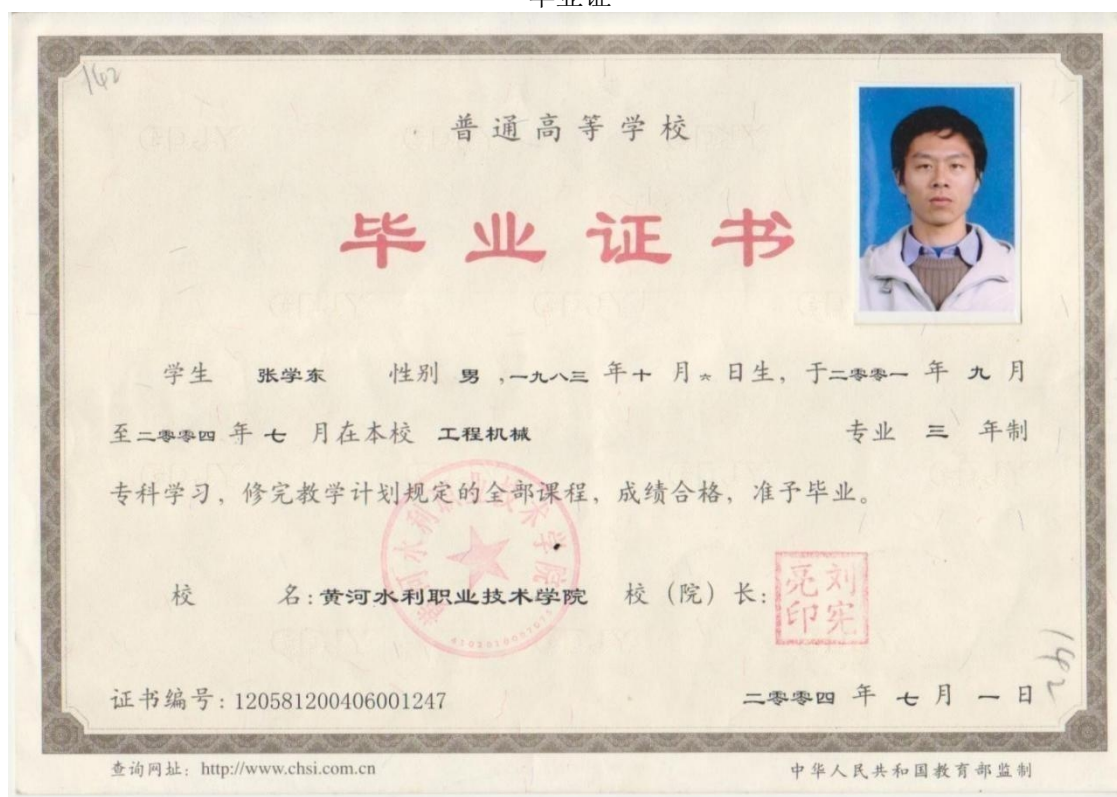 毕业证
142
普通高等学校
毕业证书
学生 张学东 性别 男 ,一九八三 年十 月六 日生，于二零零一 年 九 月
至二零零四 年 七 月在本校 工程机械 专业 三 年制
专科学习，修完教学计划规定的全部课程，成绩合格，准予毕业。
黄河水利职业技术学院
校 名:黄河水利职业技术学院 校（院）长:
刘宪亮印
142
证书编号:120581200406001247 二零零四 年 七 月 一 日
查询网址：http://www.chsi.com.cn 中华人民共和国教育部监制